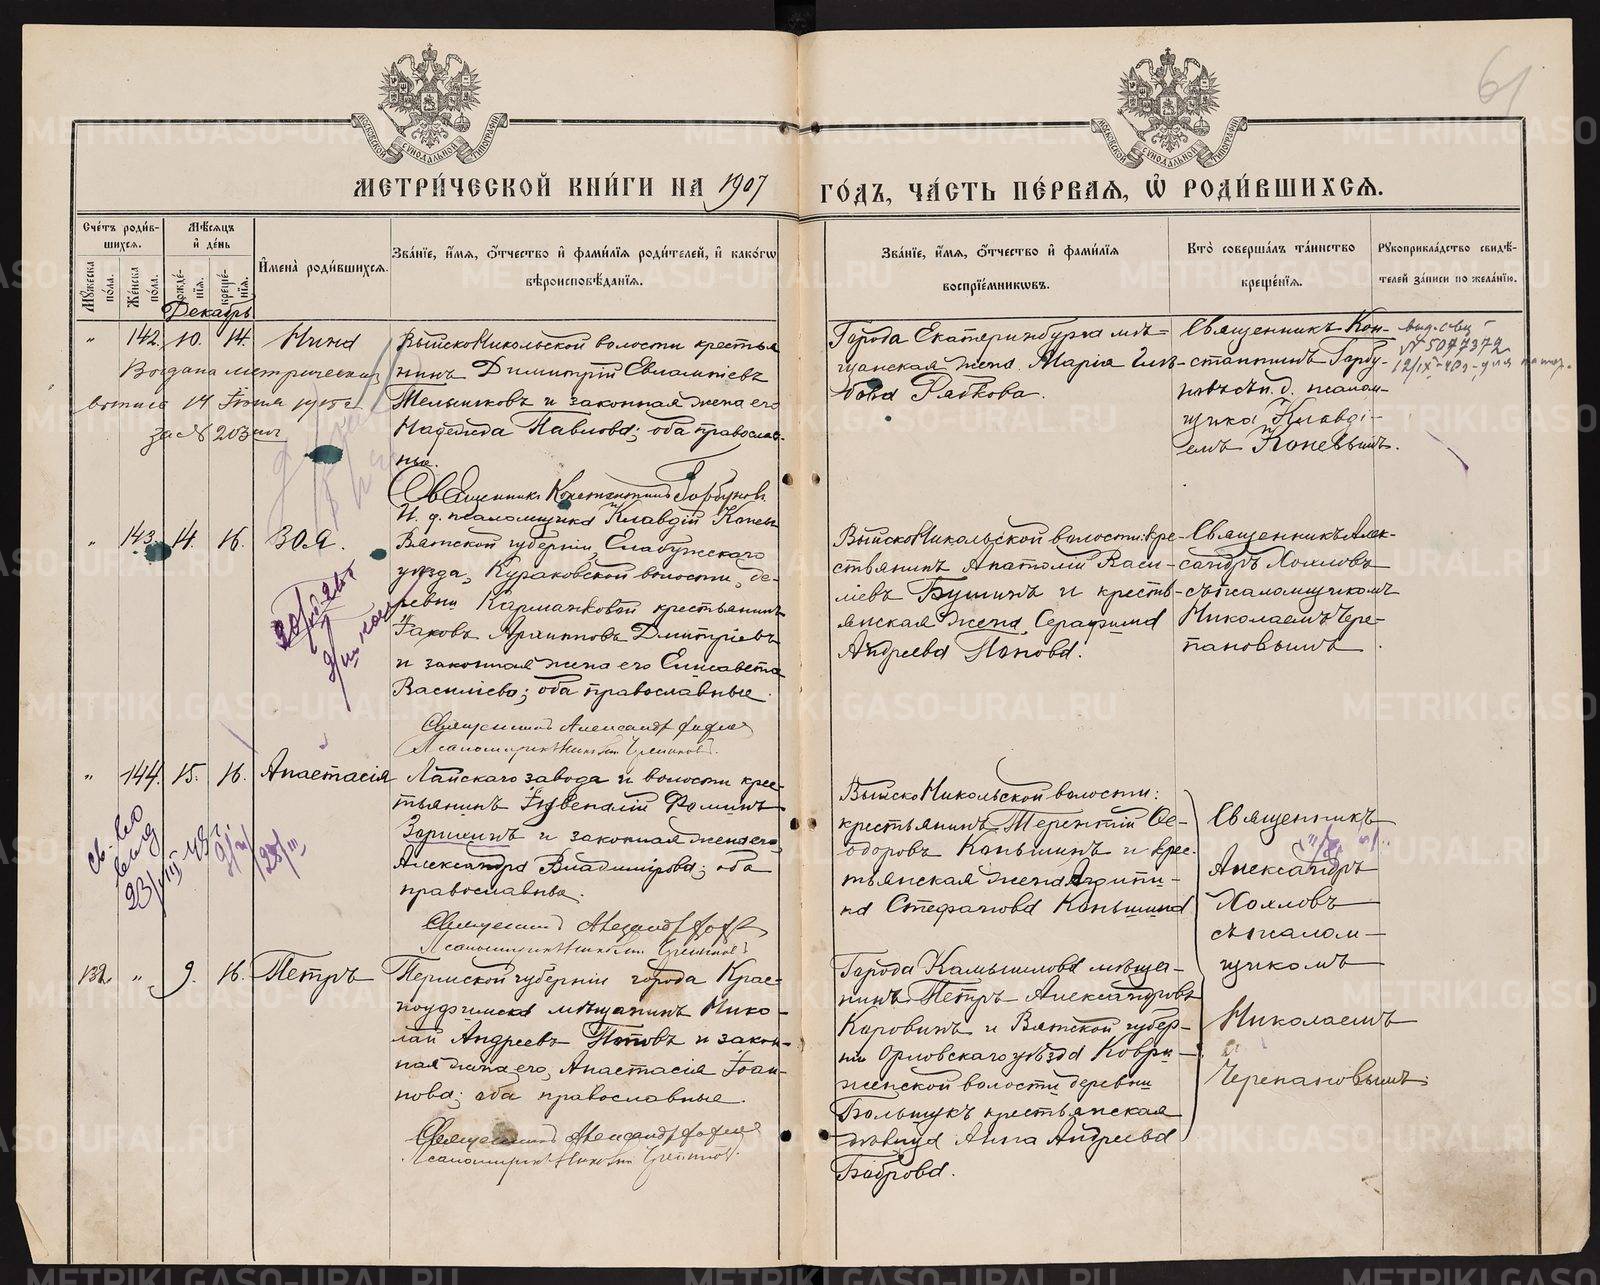 61
МЕТРИ́ЧЕСКОЙ КНИ́ГИ НА 1907 ГО́ДЪ, ЧА́СТЬ ПЕ́РВАѦ, Ѽ РОДИ́ВШИХСѦ.
Сче́тъ роди́вшихсѧ.
Мꙋ́жеска по́ла.
Же́нска по́ла.
Мѣ́сѧцъ и҆ де́нь
рожде́нїѧ.
креще́нїѧ.
И҆мена̀ роди́вшихсѧ.
Зва́нїе, и҆́мѧ, ѻ҆́тчество и҆ фами́лїѧ роди́телей, и҆ како́гѡ
вѣроисповѣ́данїѧ.
Зва́нїе, и҆́мѧ, ѻ҆́тчество и҆ фами́лїѧ
воспрїе́мникѡвъ.
Кто̀ соверша́лъ та́инство
креще́нїѧ.
Рꙋкоприкла́дство свидѣ́-
телей за́писи по жела́нїю.
Декабрь
" 142. 10. 14. Нина
Выдана метрическая
выпись 14 Іюня 1915 г.
за № 203
ВыйскоНикольской волости крестья
нинъ Димитрій Евлампіевъ
Мельниковъ и законная жена его
Надежда Павлова; оба православ-
ные.
Священникъ Константинъ Горбуновъ
И. д. псаломщика Клавдій Коневъ
Города Екатеринбурга мѣ-
щанская жена Марія Глѣ-
бова Рябкова.
Священникъ Кон-
стантинъ Горбу-
новъ съ и. д. псалом-
щика Клавді-
емъ Коневымъ.
№ 5047372
" 143. 14. 16. Зоя.
Вятской губерніи, Елабужскаго
уѣзда, Кураковской волости, де-
ревни Кармановой крестьянинъ
Іаковъ Архиповъ Дмитріевъ
и законная жена его Елисавета
Василіева; оба православные.
Священникъ Александръ Хохловъ
Псаломщикъ Николай Черепановъ.
ВыйскоНикольской волости: кре-
стьянинъ Анатолій Васи-
ліевъ Бушинъ и кресть-
янская жена Серафима
Андреева Попова.
Священникъ Алек-
сандръ Хохловъ
съ псаломщикомъ
Николаемъ Чере-
пановымъ
" 144. 15. 16. Анастасія
Лайскаго завода и волости крес-
тьянинъ Іувеналій Фоминъ
Зоринъ и законная жена его
Александра Владимірова; оба
православные.
Священникъ Александръ Хохловъ
Псаломщикъ Николай Черепановъ
ВыйскоНикольской волости:
крестьянинъ Терентій Ѳе-
одоровъ Коньшинъ и крес-
тьянская жена Агрипи-
на Стефанова Коньшина
Священникъ
Александръ
Хохловъ
съ псалом-
щикомъ
Николаемъ
Черепановымъ
132. " 9. 16. Петръ
Пермской губерніи города Крас-
ноуфимска мѣщанинъ Нико-
лай Андреевъ Поповъ и закон-
ная жена его, Анастасія Іоан-
нова; оба православные.
Священникъ Александръ Хохловъ
Псаломщикъ Николай Черепановъ.
Города Камышлова мѣща-
нинъ Петръ Александровъ
Коровинъ и Вятской губер-
ніи Орловскаго уѣзда Коври-
женской волости деревни
Большукъ крестьянская
дѣвица Анна Андреева
Боброва.
METRIKI.GASO-URAL.RU